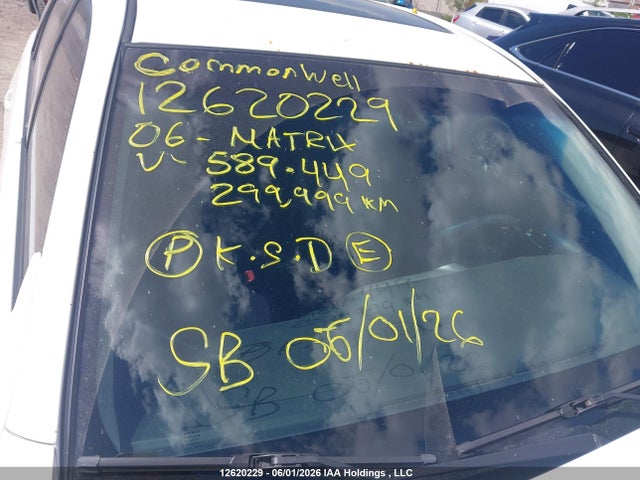 Commonwell
12620229
06- MATRIX
V- 589.449
299,999 KM
P K.S.D E
SB 06/01/26
12620229 - 06/01/2026 IAA Holdings , LLC